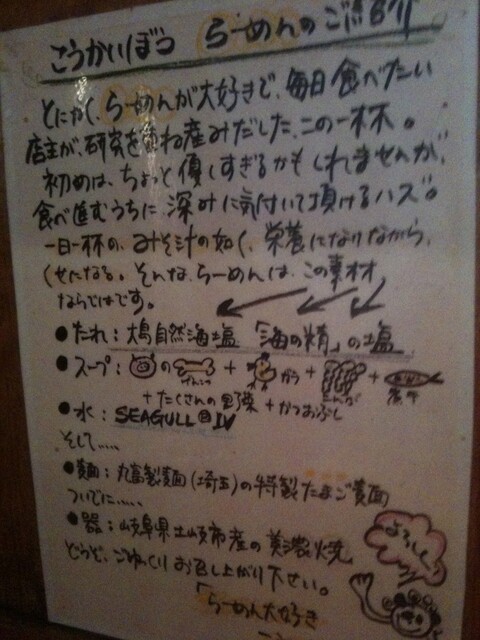 こうかいぼう らーめんのご紹介
とにかく、らーめんが大好きで、毎日食べたい
店主が、研究を重ね産みだした、この一杯。
初めは、ちょっと優しすぎるかもしれませんが、
食べ進むうちに、深みに気付いて頂けるハズ。
一日一杯の、みそ汁の如く、栄養になりながら、
くせになる。そんな、らーめんは、この素材
ならではです。
●たれ：大島自然海塩 「海の精」の塩
●スープ：の げんこつ + がら + とんがら + 煮干
+たくさんの野菜 +かつおぶし
●水：SEAGULL Ⅳ
そして‥‥‥
●麺：丸富製麺(埼玉)の特製たまご麺
ついでに‥‥‥
●器：岐阜県土岐市産の美濃焼
どうぞ、ごゆっくりお召し上がり下さい。
よろしく
「らーめん大好き